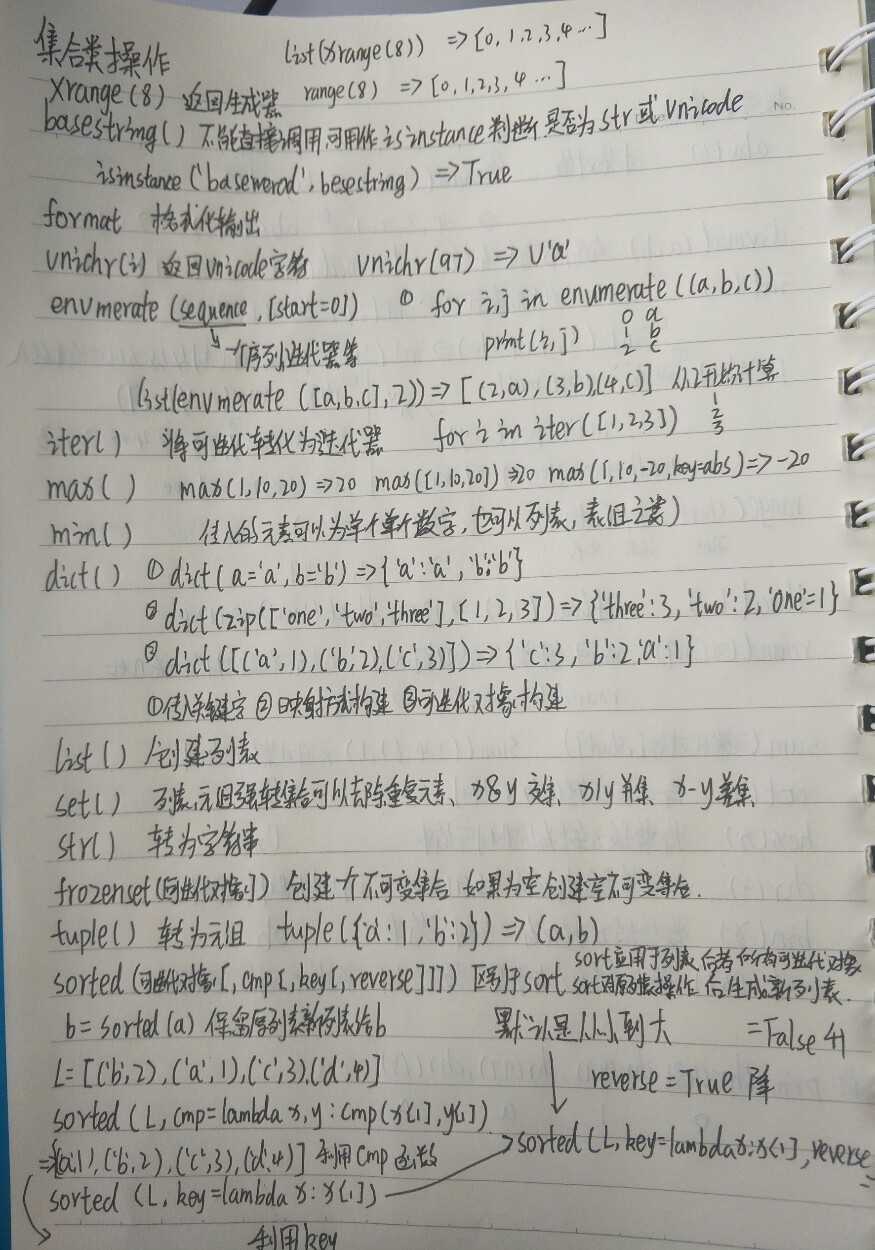 集合类操作 list(xrange(8)) => [0,1,2,3,4…]
xrange(8) 返回生成器 range(8) => [0,1,2,3,4…]
basestring() 不能直接调用,可用作isinstance判断是否为str或Unicode
isinstance('basewerod', besestring) => True
format 格式化输出
Unichr(i) 返回Unicode字符 Unichr(97) => U'a'
enumerate (sequence, [start=0]) ① for i,j in enumerate((a,b,c))
print(i,j)
0 a
1 b
2 c
一个序列迭代器等
list(enumerate ([a,b,c],2)) => [(2,a),(3,b)(4,c)] 从2开始计算
iter() 将可迭代转化为迭代器 for i in iter([1,2,3])
1
2
3
max() max(1,10,20) => 20 max([1,10,20]) => 20 max(1,10,-20,key=abs) => -20
min() 传入的元素可以为单个单个数字,也可以列表,元组之类)
dict() ① dict(a='a', b='b') => {'a':'a', 'b':'b'}
② dict(zip(['one','two','three'],[1,2,3]) => {'three':3,'two':2,'one'=1}
③ dict([('a',1),('b',2),('c',3)]) => {'c':3,'b':2,'a':1}
①传入关键字 ②映射方式构建 ③可迭代对象构建
list() 创建列表
set() 列表,元组强转集合可以去除重复元素、x&y 交集、x|y 并集、x-y差集
str() 转为字符串
frozenset(可迭代对象) 创建一个不可变集合 如果为空创建空不可变集合.
tuple() 转为元组 tuple({'a':1,'b':2}) => (a,b)
sorted (可迭代对象[,cmp[,key[,reverse]]]) 区别于sort sort应用于列表 后者 所有可迭代对象
sort对原列表操作 后生成新列表.
b=sorted(a) 保留原列表新列表给b 默认是从小到大 =False 升
L=[('b',2),('a',1),('c',3),('d',4)] reverse=True 降
sorted (L, cmp=lambda x,y: cmp(x[1],y[1])
=>[(a,1),('b',2),('c',3),(d,4)] 利用cmp函数 sorted (L,key=lambda x:x[1],reverse=
sorted (L,key=lambda x:x[1])
利用key